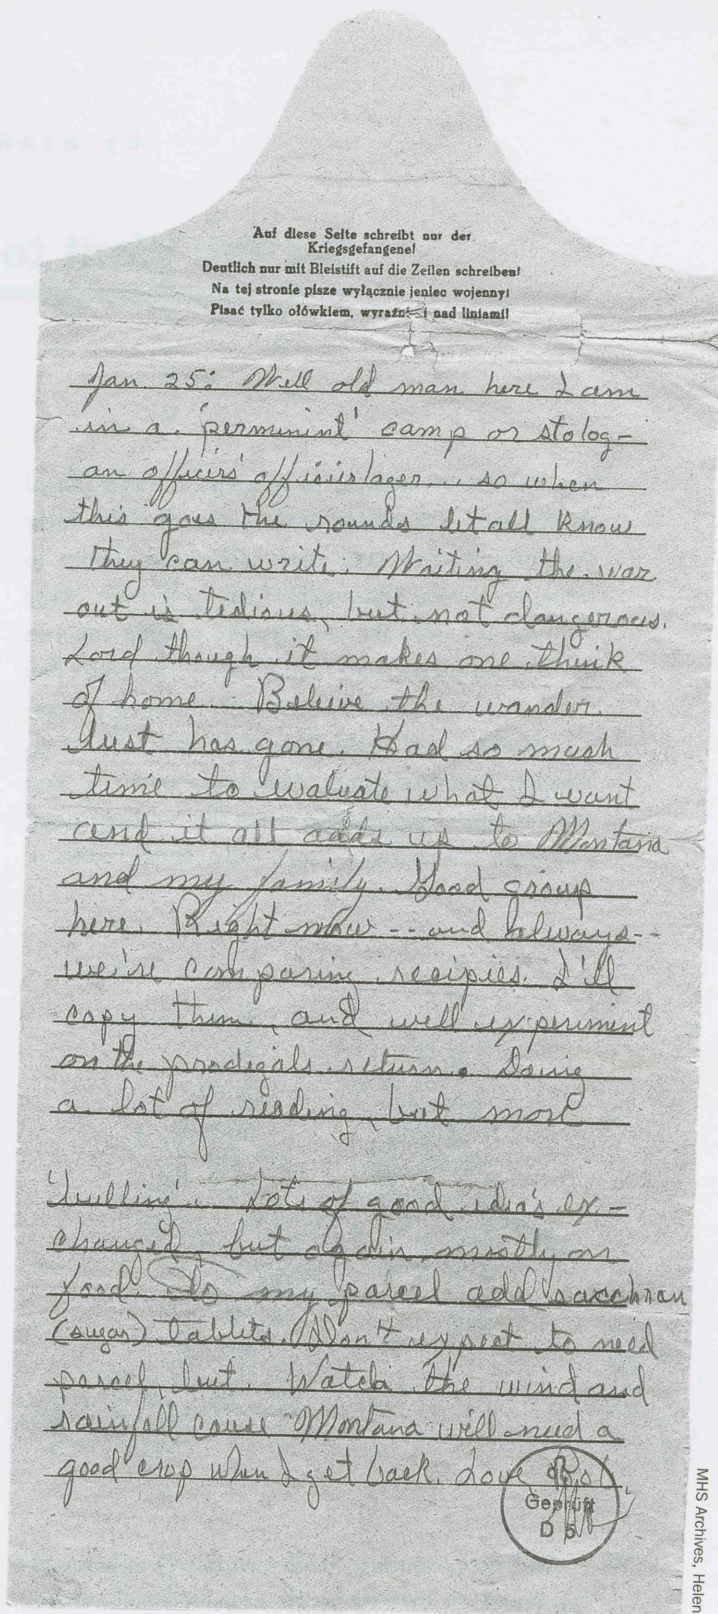 Auf diese Seite schreibt nur der
Kriegsgefangene!
Deutlich nur mit Bleistift auf die Zeilen schreiben!
Na tej stronie pisze wyłącznie jeniec wojenny!
Pisać tylko ołówkiem, wyraźnie i nad liniami!
Jan. 25: Well old man here I am
in a 'perminint' camp or stolog-
an officirs' offisirslager... so when
this goes the rounds let all know
they can write. Waiting the war
out is tedious, but not dangerous.
Lord though it makes one think
of home. Beleive the wander
lust has gone. Had so much
time to evaluate what I want
and it all adds up to Montana
and my family. Good group
here. Right now -- and always --
we're comparing recipies. I'll
copy them, and we'll experiment
on the prodigals return. Doing
a lot of reading, but more
Lots of good idea's ex-
changed, but again mostly on
food. To my parcel add saccharan
(sugar) tablets. Don't expect to need
parcel, but. Watch the wind and
rainfall cause Montana will need a
good crop when I get back. Love Bob.
Geprüft
D 5
MHS Archives, Helen